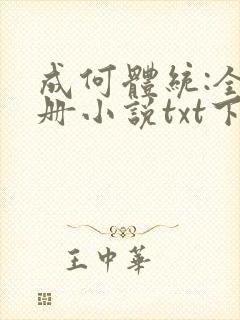 成何體統:全
册小説txt下
王中華